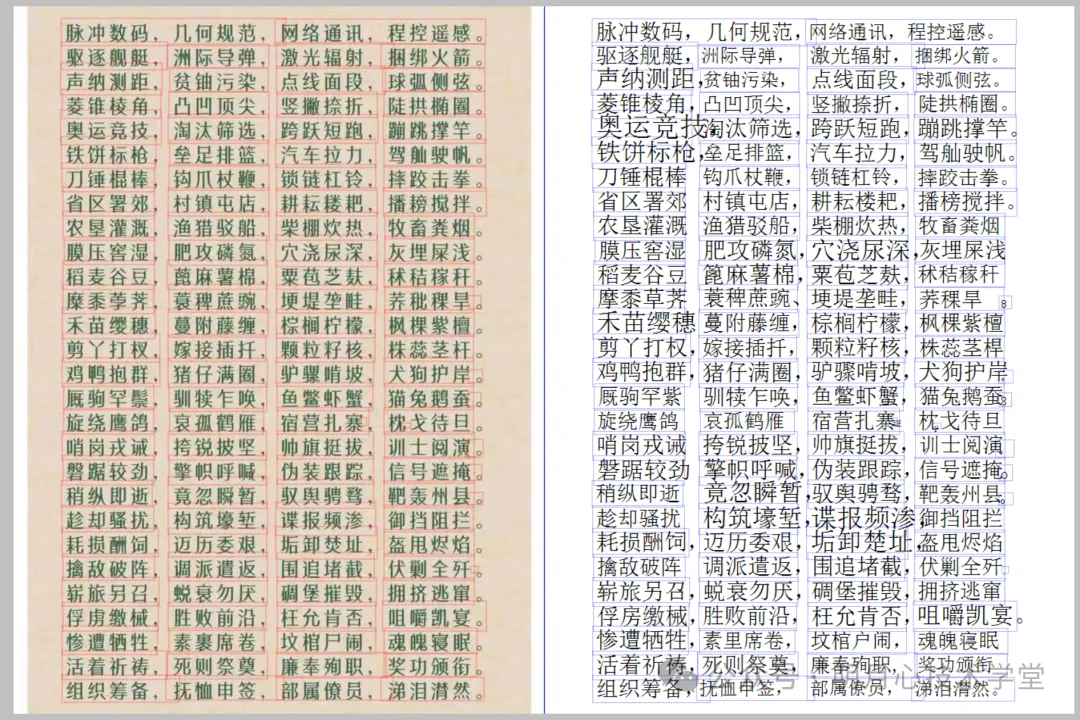 脉冲数码，几何规范，网络通讯，程控遥感。
驱逐舰艇，洲际导弹，激光辐射，捆绑火箭。
声纳测距，贫铀污染，点线面段，球弧侧弦。
菱锥棱角，凸凹顶尖，竖撇捺折，陡拱椭圈。
奥运竞技，淘汰筛选，跨跃短跑，蹦跳撑竿。
铁饼标枪，垒足排篮，汽车拉力，驾舢驶帆。
刀锤棍棒，钩爪杖鞭，锁链杠铃，摔跤击拳。
省区署郊，村镇屯店，耕耘耧耙，播榜搅拌。
农垦灌溉，渔猎驳船，柴棚炊热，牧畜粪烟。
膜压窖湿，肥攻磷氮，穴浇尿深，灰埋屎浅。
稻麦谷豆，蓖麻薯棉，粟苞芝麸，秫秸稼秆。
摩黍荸荠，蓑稗蔗豌，埂堤垄畦，荞秕稞旱。
禾苗缨穗，蔓附藤缠，棕榈柠檬，枫棵紫檀。
剪丫打杈，嫁接插扦，颗粒籽核，株蕊茎杆。
鸡鸭抱群，猪仔满圈，驴骡啃坡，犬狗护岸。
厩驹罕鬃，驯犊乍唤，鱼鳖虾蟹，猫兔鹅蚕。
旋绕鹰鸽，哀孤鹤雁，宿营扎寨，枕戈待旦。
哨岗戎诫，挎锐披坚，帅旗挺拔，训士阅演。
磐踞较劲，擎帜呼喊，伪装跟踪，信号遮掩。
稍纵即逝，竟忽瞬暂，驭舆骋骛，靶轰州县。
趁却骚扰，构筑壕堑，谍报频渗，御挡阻拦。
耗损酬饲，迈历委艰，垢卸焚址，盔甩烬焰。
擒敌破阵，调派遣返，围追堵截，伏剿全歼。
崭旅另召，蜕衰勿厌，碉堡摧毁，拥挤逃窜。
俘虏缴械，胜败前沿，枉允肯否，咀嚼凯宴。
惨遭牺牲，素裹席卷，坟棺尸闹，魂魄寝眠。
活着祈祷，死则祭奠，廉奉殉职，奖功颁衔。
组织筹备，抚恤申签，部属僚员，涕泪潸然。
脉冲数码，几何规范，网络通讯，程控遥感。
驱逐舰艇，洲际导弹，激光辐射，捆绑火箭。
声纳测距，贫铀污染，点线面段，球弧侧弦。
菱锥棱角，凸凹顶尖，竖撇捺折，陡拱椭圈。
奥运竞技，淘汰筛选，跨跃短跑，蹦跳撑竿。
铁饼标枪，垒足排篮，汽车拉力，驾舢驶帆。
刀锤棍棒 钩爪杖鞭，锁链杠铃，摔跤击拳。
省区署郊 村镇屯店，耕耘耧耙，播榜搅拌。
农垦灌溉 渔猎驳船，柴棚炊热，牧畜粪烟
膜压窖湿 肥攻磷氮，穴浇尿深，灰埋屎浅
稻麦谷豆 蓖麻薯棉，粟苞芝麸，秫秸稼秆
摩黍草荠 蓑稗蔗豌、埂堤垄畦，荞稞旱 8
禾苗缨穗 蔓附藤缠，棕榈柠檬，枫棵紫檀
剪丫打权，嫁接插扦，颗粒籽核，株蕊茎桿
鸡鸭抱群，猪仔满圈，驴骡啃坡，犬狗护岸。
厩驹罕紫 驯犊乍唤，鱼鳖虾蟹，猫兔鹅蚕。
旋绕鹰鸽 哀孤鹤雁 宿营扎寨 枕戈待旦
哨岗戎诫，挎锐披坚，帅旗挺拔，训士阅演
磐踞较劲 擎帜呼喊，伪装跟踪，信号遮掩。
稍纵即逝 竟忽瞬暂，驭舆骋骛，靶轰州县。
趁却骚扰 构筑壕堑，谍报频渗，御挡阻拦
耗损酬饲，迈历委艰，垢卸楚址，盔甩烬焰
擒敌破阵 调派遣返，围追堵截，伏剿全歼
崭旅另召，蜕衰勿厌，碉堡摧毁，拥挤逃窜
俘虏缴械，胜败前沿，枉允肯否，咀嚼凯宴。
惨遭牺牲，素里席卷，坟棺户闹，魂魄寝眠
活着祈祷，死则祭奠，廉奉殉职，奖功颁衔
组织筹备，抚恤申签，部属僚员，涕泪潸然。
公众号·明月心技术学堂